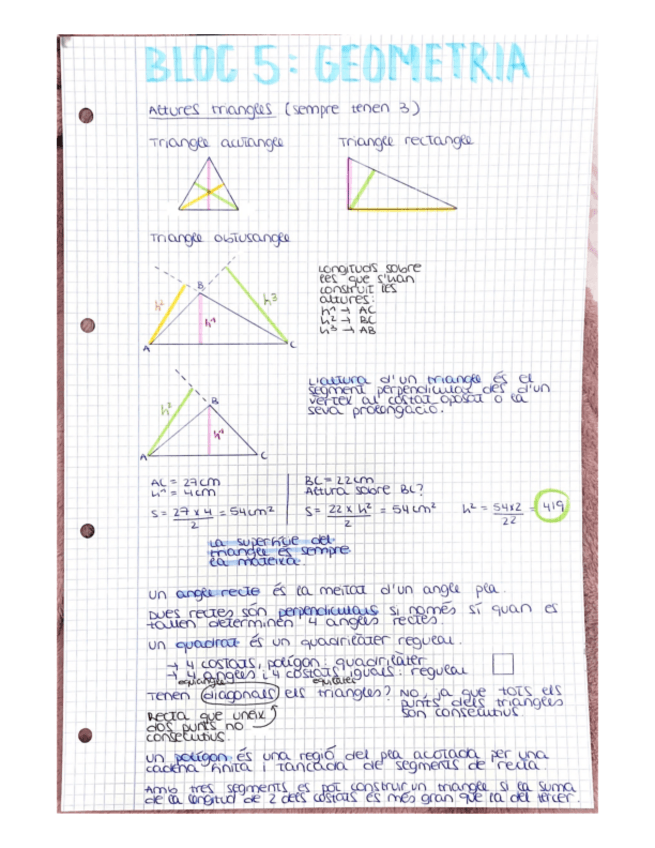 BLOC 5: GEOMETRIA
Altures triangles (sempre tenen 3)
Triangle acutangle
Triangle rectangle
Triangle obtusangle
B
h²
h¹
h³
A
C
Longituds sobre
les que s'han
construit les
altures:
h¹ → AC
h² → BC
h³ → AB
B
h²
h¹
A
C
L'altura d'un triangle és el
segment perpendicular des d'un
vèrtex al costat oposat o la
seva prolongació.
AC = 27cm
h¹ = 4cm
S = 27 x 4 / 2 = 54cm²
BC = 22cm
Altura sobre BC?
S = 22 x h² / 2 = 54cm²
h² = 54x2 / 22 = 4,9
La superfície del
triangle és sempre
la mateixa.
Un angle recte és la meitat d'un angle pla.
Dues rectes són perpendiculars si només sí quan es
tallen determinen 4 angles rectes.
Un quadrat és un quadrilàter regular.
→ 4 costats, polígon: quadrilàter
→ 4 angles i 4 costats iguals: regular
equiangle
equilàter
Tenen diagonals els triangles? No, ja que tots els
punts dels triangles
són consecutius.
Recta que uneix
dos punts no
consecutius.
Un polígon és una regió del pla acotada per una
cadena finita i tancada de segments de recta.
Amb tres segments es pot construir un triangle si la suma
de la longitud de 2 dels costats és més gran que la del tercer.